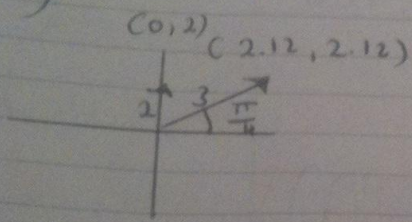 (0,2)
(2.12, 2.12)
2 3 π/4